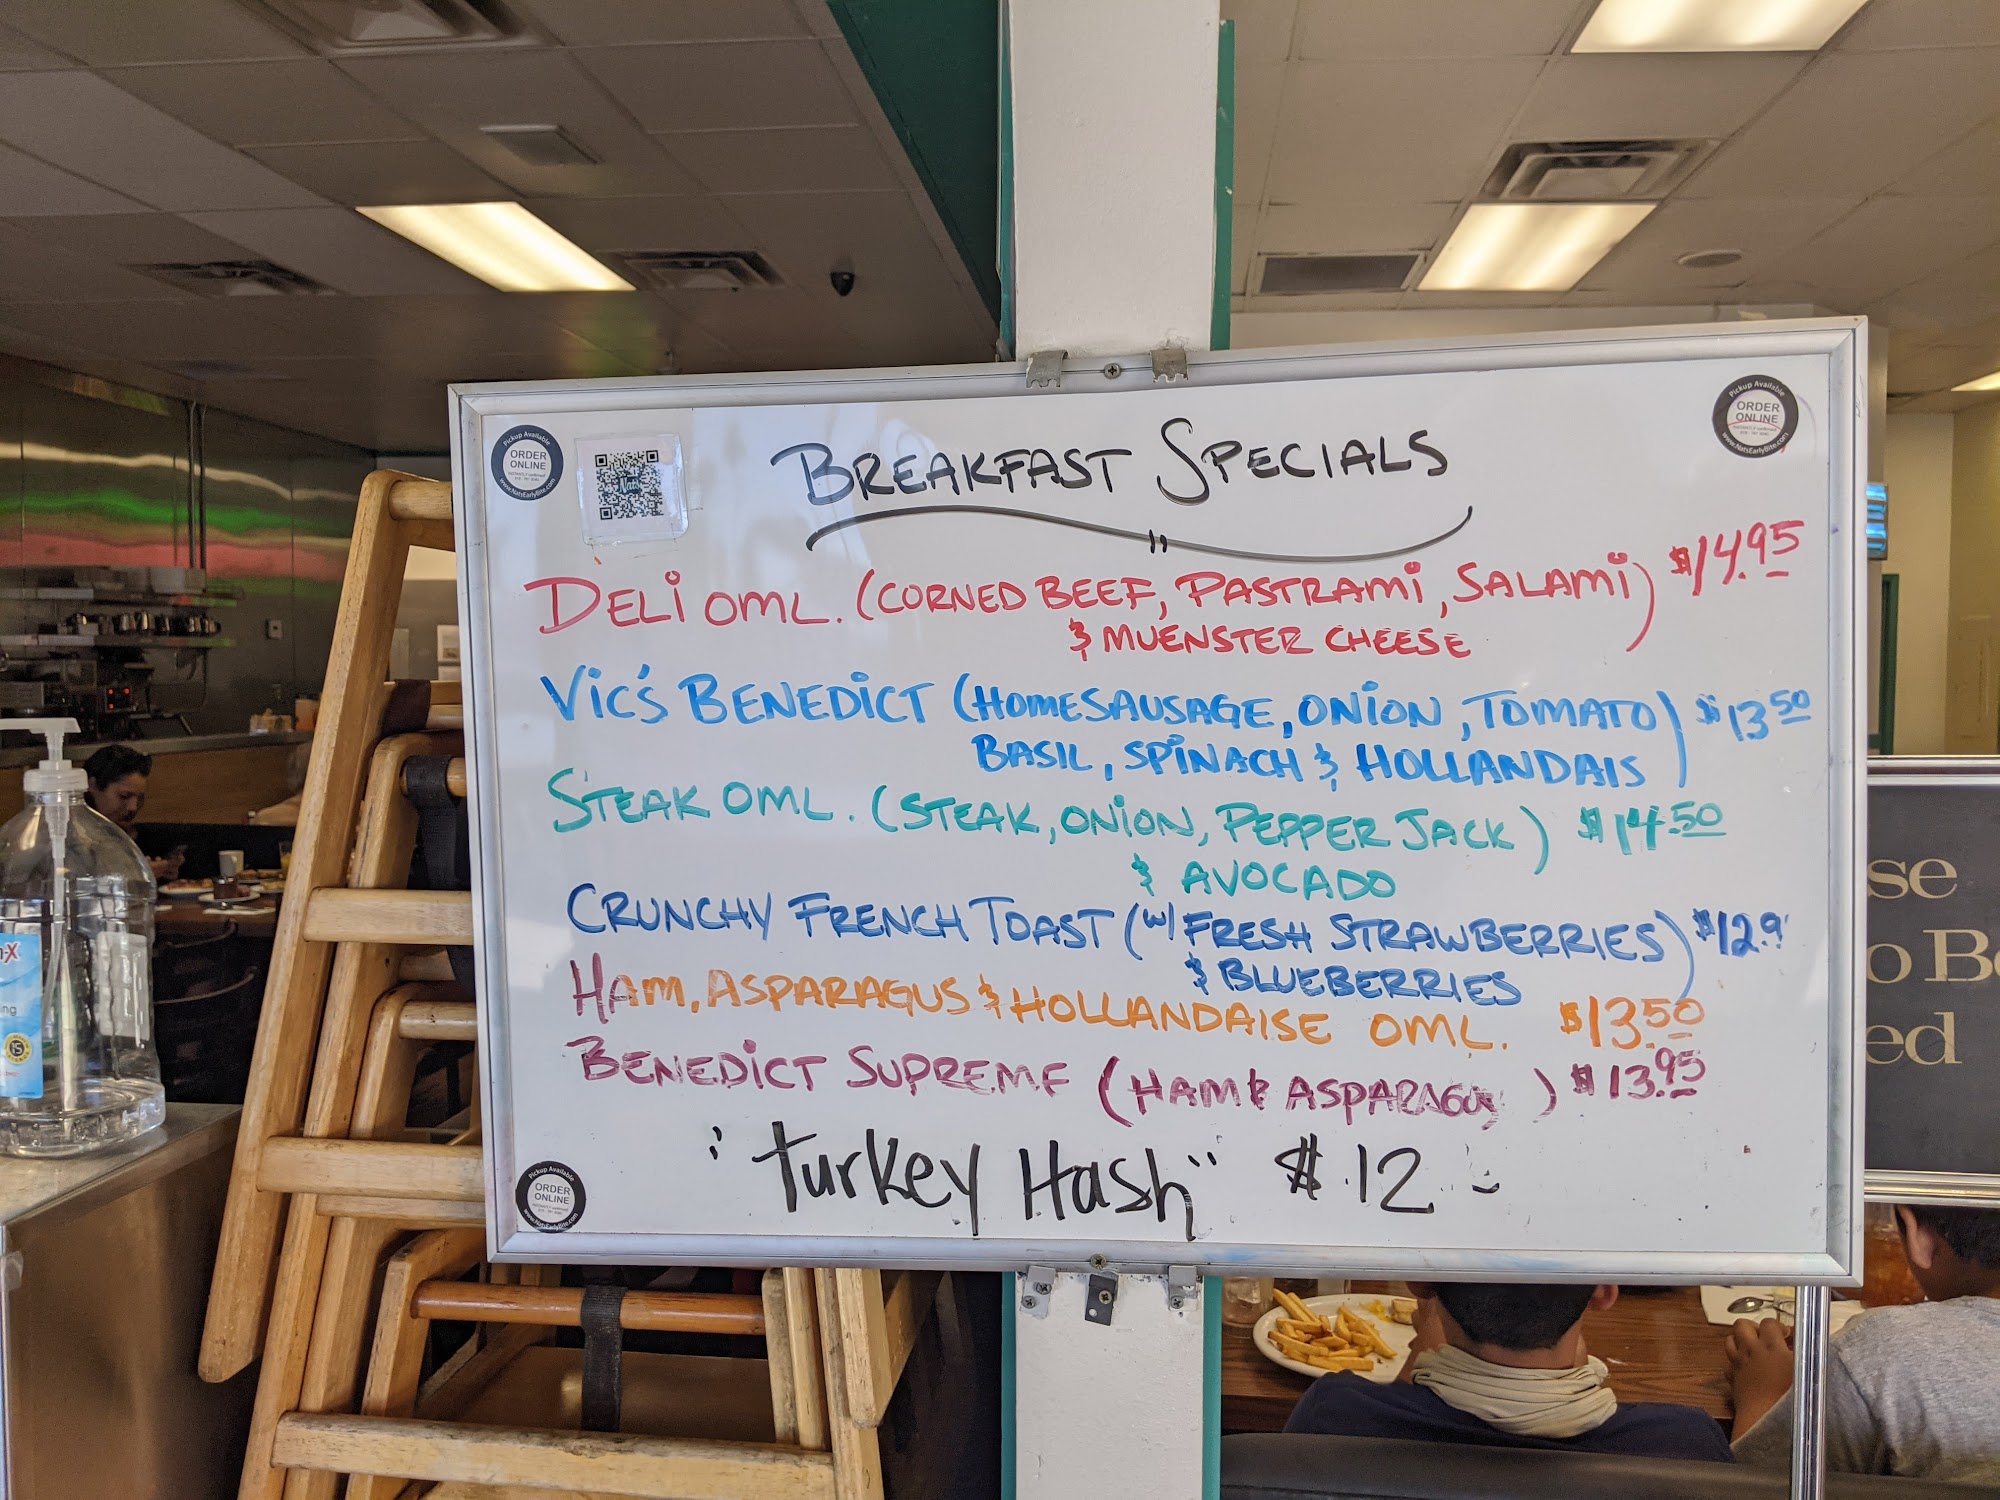 BREAKFAST SPECIALS
Pickup Available
ORDER
ONLINE
www.NatsEarlyBite.com
Nat's
Pickup Available
ORDER
ONLINE
www.NatsEarlyBite.com
DELI OML. (CORNED BEEF, PASTRAMI, SALAMI) $14.95
& MUENSTER CHEESE
VIC'S BENEDICT (HOMESAUSAGE, ONION, TOMATO) $13.50
BASIL, SPINACH & HOLLANDAIS
STEAK OML. (STEAK, ONION, PEPPER JACK) $14.50
& AVOCADO
CRUNCHY FRENCH TOAST (W/ FRESH STRAWBERRIES) $12.9
& BLUEBERRIES
HAM, ASPARAGUS & HOLLANDAISE OML. $13.50
BENEDICT SUPREME (HAM & ASPARAGUS) $13.95
"Turkey Hash" $12
Pickup Available
ORDER
ONLINE
www.NatsEarlyBite.com
se
o Be
ed